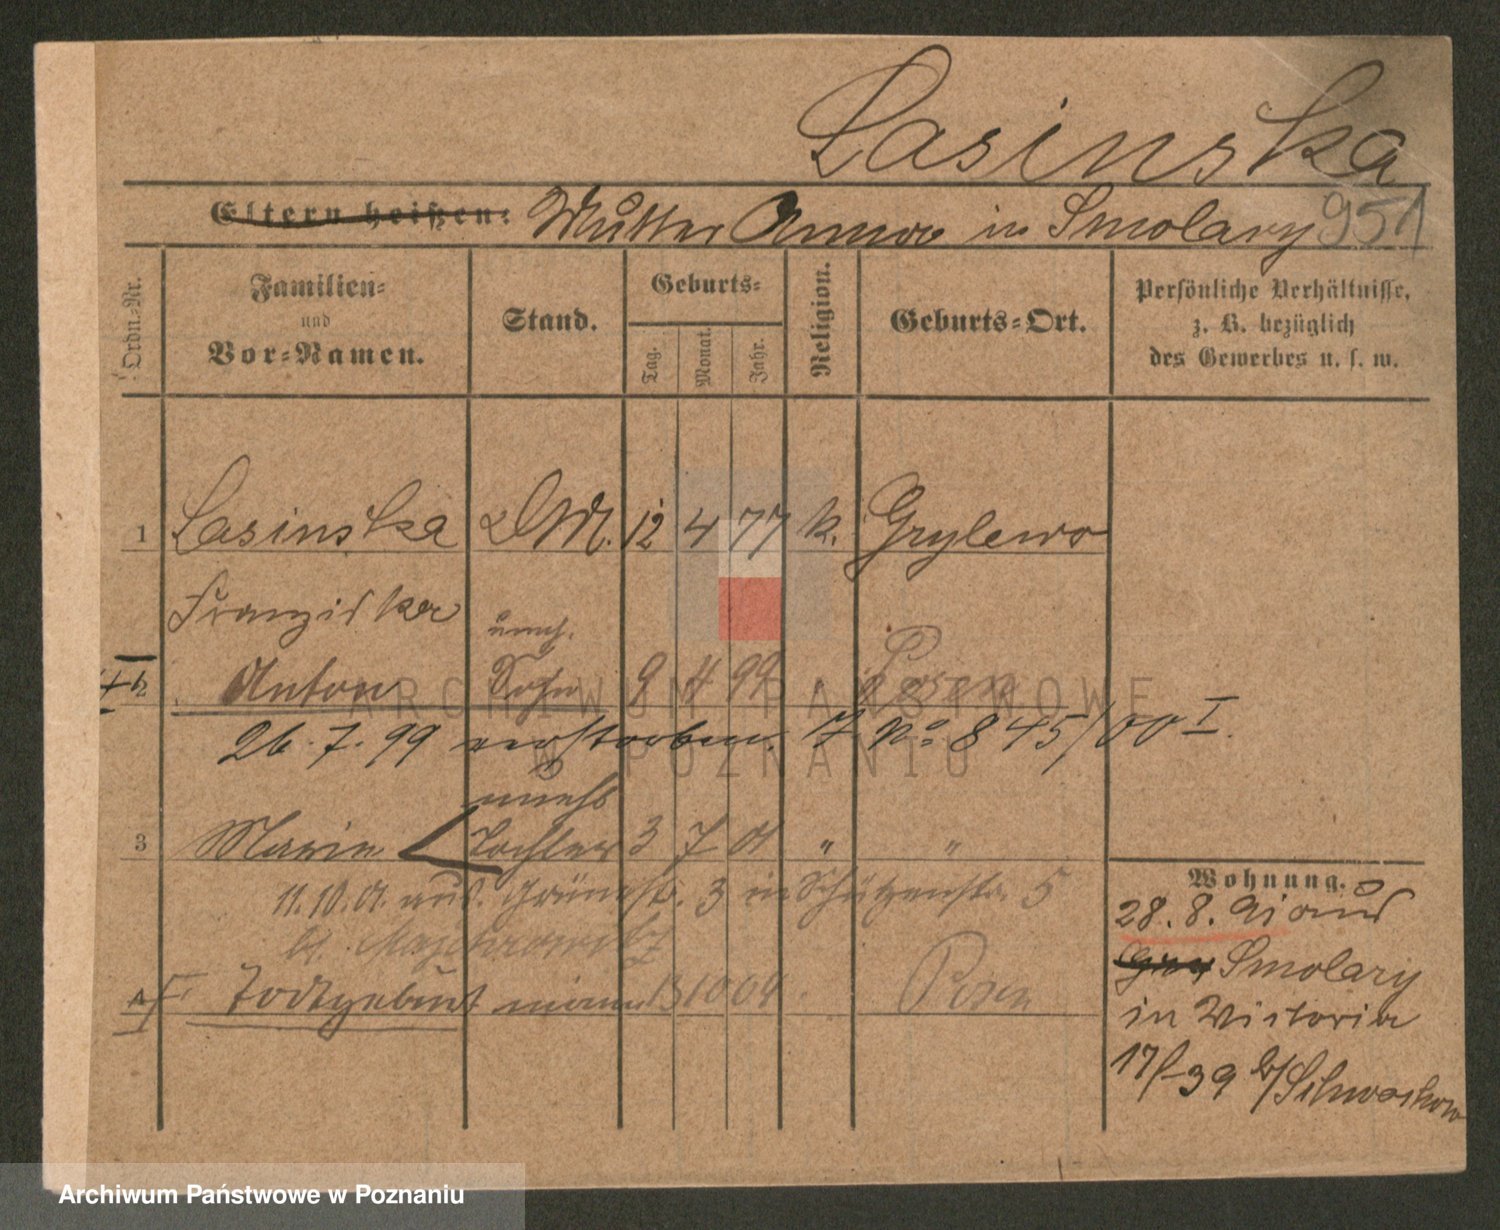 Lasinska
Eltern heißen: Mutter Anna in Smolary 951
Ordn.-Nr.
Familien-
und
Vor-Namen.
Stand.
Geburts-
Tag.
Monat.
Jahr.
Religion.
Geburts-Ort.
Persönliche Verhältnisse,
z. B. bezüglich
des Gewerbes u. s. w.
1 Lasinska DM. 12 4 77 k. Grylewo
Franziska
uneh.
Anton Sohn 9 4 99 Posen
26.7.99 verstorben. No 845/00 I.
unehl
3 Marie Tochter 3 7 01 " "
11.10.01. aus. Grünestr. 3 in Schützenstr. 5
Todtgeburt männ 13 10 04. Posen
Wohnung.
28. 8. 95 aus
Smolary
in Victoria
17/39 b/
ARCHIWUM PAŃSTWOWE
W POZNANIU
Archiwum Państwowe w Poznaniu